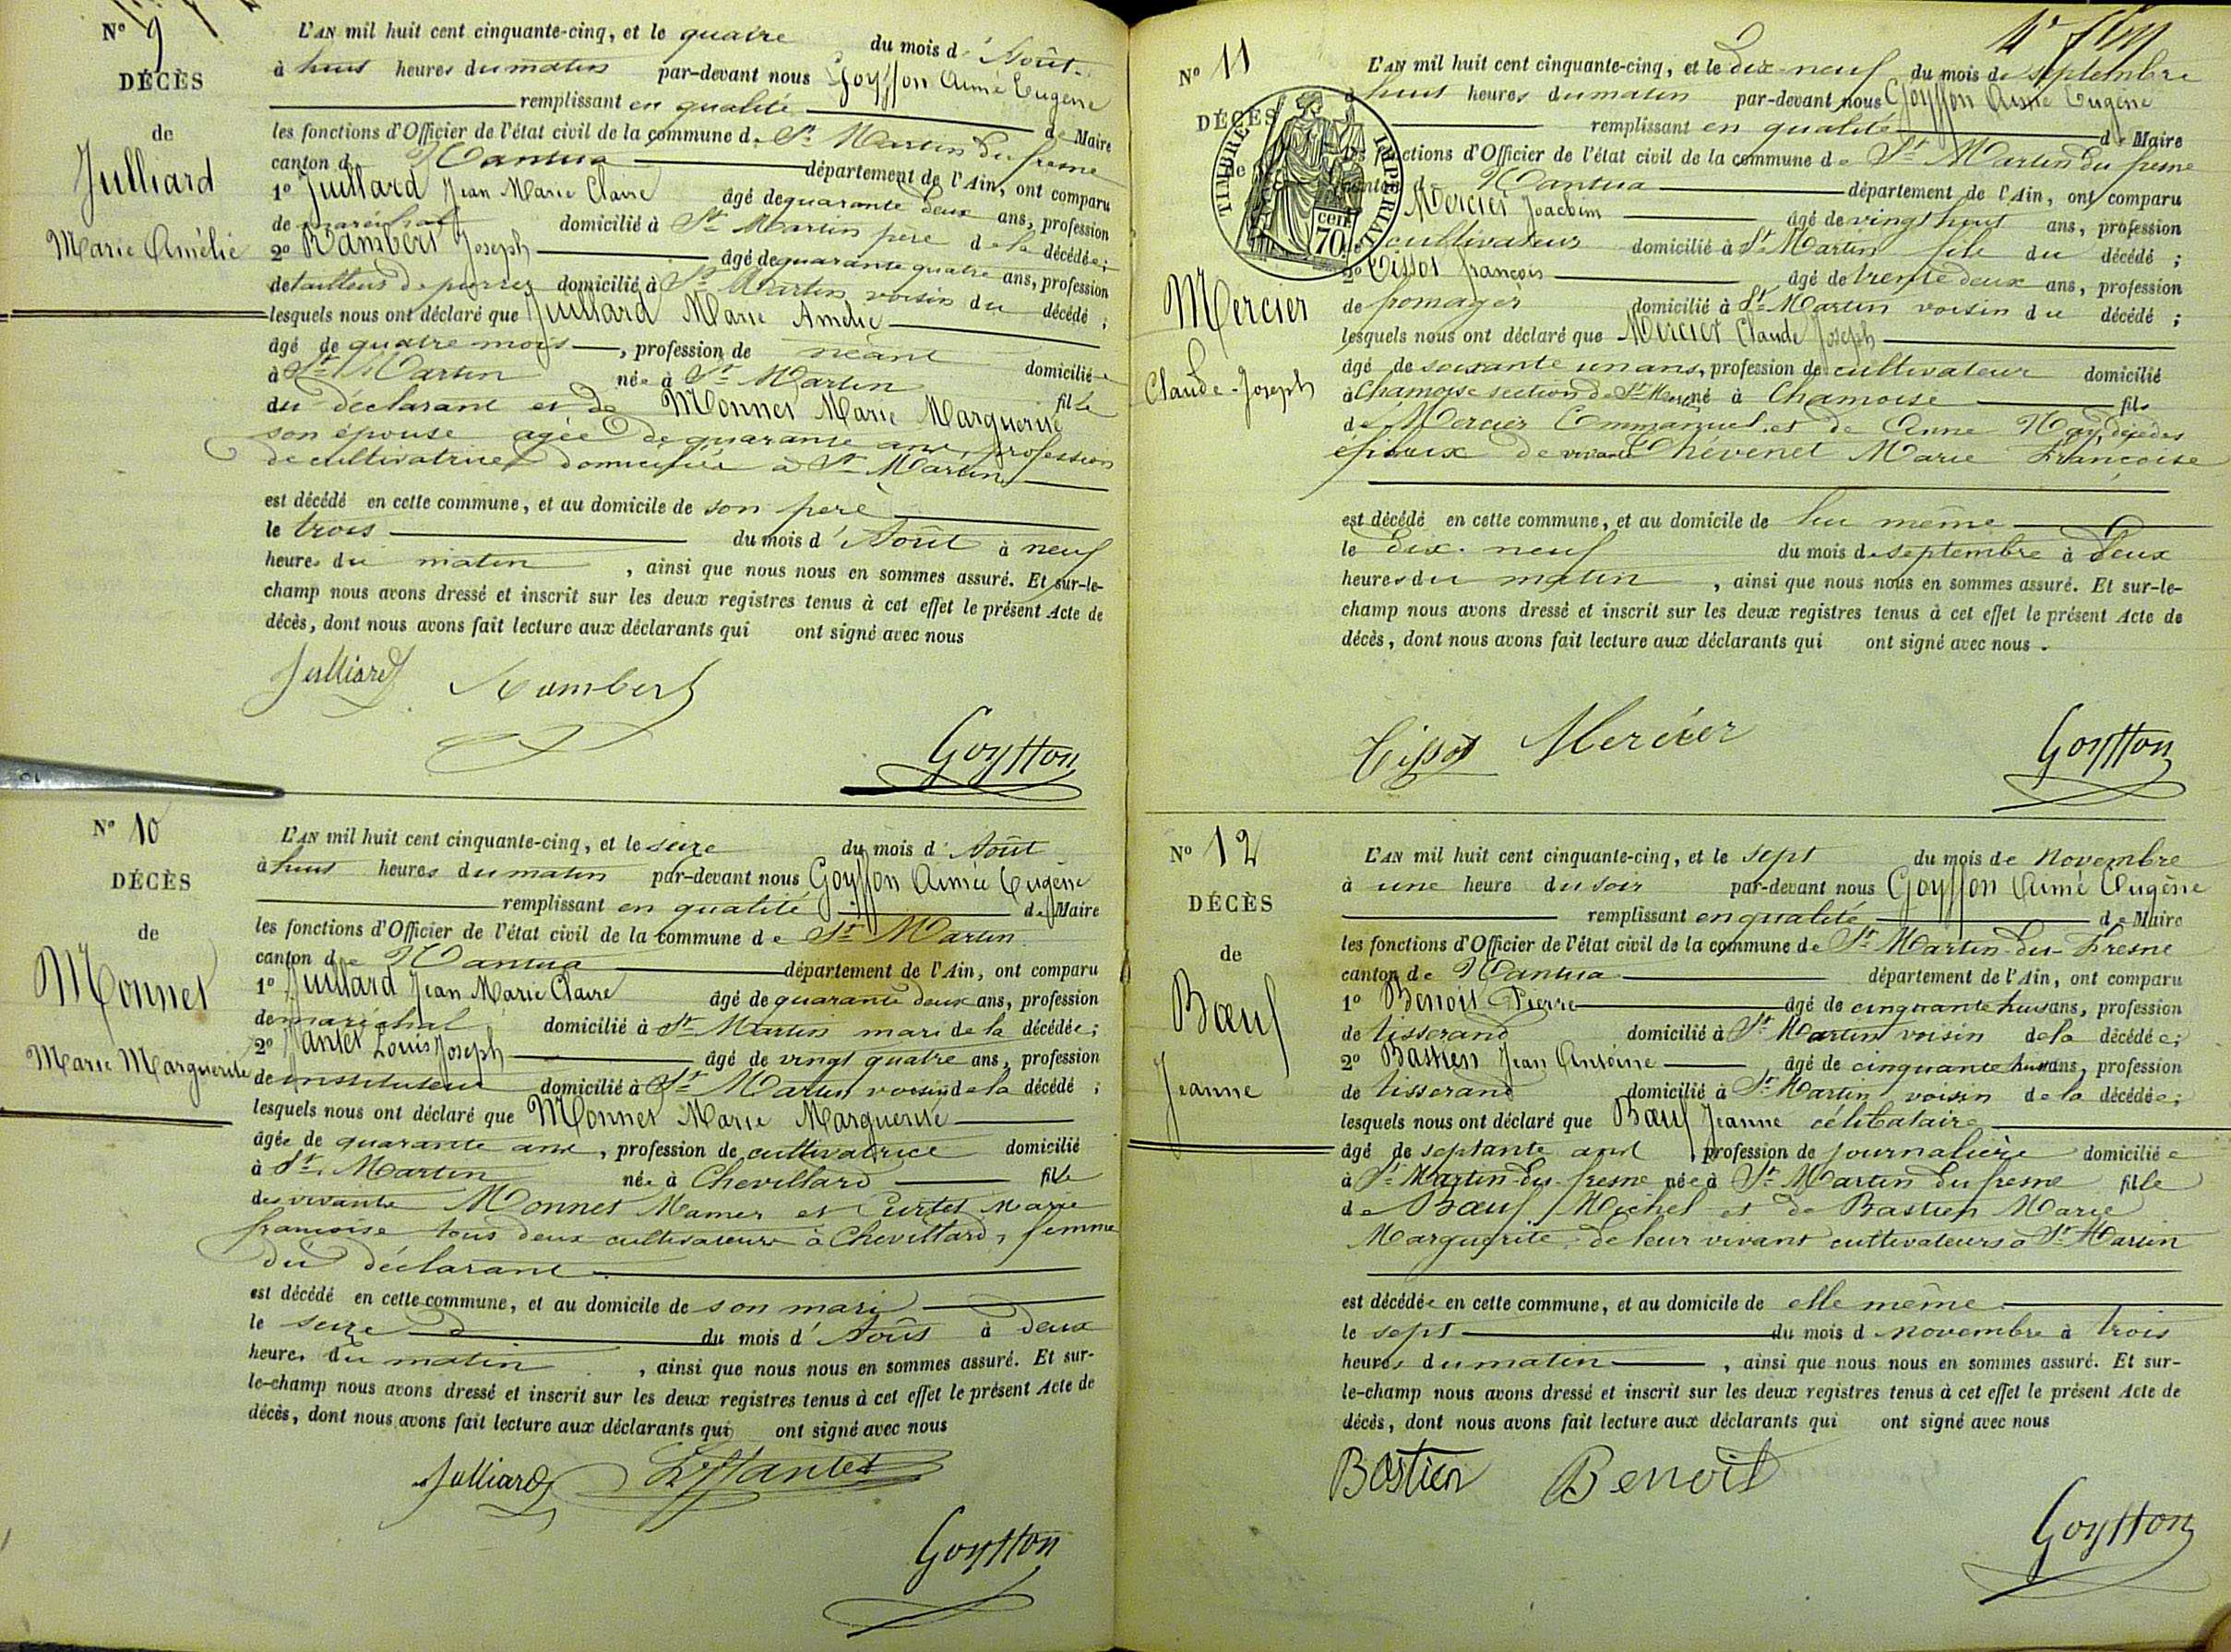 N° 9
DÉCÈS
de
Julliard
Marie Amélie
L'AN mil huit cent cinquante-cinq, et le quatre du mois d'Août
à huit heures du matin par-devant nous Goyffon Aimé Eugène
remplissant en qualité de Maire
les fonctions d'Officier de l'état civil de la commune de St Martin du fresne
canton de Nantua département de l'Ain, ont comparu
1° Juillard Jean Marie Claire âgé de quarante deux ans, profession
de maréchal domicilié à St Martin père de la décédée;
2° Rambert Joseph âgé de quarante quatre ans, profession
de tailleur de pierres domicilié à St Martin voisin du décédé;
lesquels nous ont déclaré que Juillard Marie Amélie
âgé de quatre mois, profession de néant domiciliée
à St Martin née à St Martin fille
du déclarant et de Monnet Marie Marguerite
son épouse agée de quarante ans, profession
de cultivatrice domiciliée à St Martin
est décédé en cette commune, et au domicile de son père
le trois du mois d'Août à neuf
heures du matin, ainsi que nous nous en sommes assuré. Et sur-le-
champ nous avons dressé et inscrit sur les deux registres tenus à cet effet le présent Acte de
décès, dont nous avons fait lecture aux déclarants qui ont signé avec nous
Julliard Rambert
Goyffon
N° 10
DÉCÈS
de
Monnet
Marie Marguerite
L'AN mil huit cent cinquante-cinq, et le seize du mois d'Août
à huit heures du matin par-devant nous Goyffon Aimée Eugène
remplissant en qualité de Maire
les fonctions d'Officier de l'état civil de la commune de St Martin
canton de Nantua département de l'Ain, ont comparu
1° Juillard Jean Marie Claire âgé de quarante deux ans, profession
de maréchal domicilié à St Martin mari de la décédée;
2° Louis Joseph âgé de vingt quatre ans, profession
de instituteur domicilié à St Martin voisin de la décédé;
lesquels nous ont déclaré que Monnet Marie Marguerite
âgée de quarante ans, profession de cultivatrice domicilié
à St Martin née à Chevillard fille
des vivants Monnet Mamer et Curtet Marie
françoise tous deux cultivateurs à Chevillard, femme
du déclarant
est décédé en cette commune, et au domicile de son mari
le seize du mois d'Août à deux
heures du matin, ainsi que nous nous en sommes assuré. Et sur-
le-champ nous avons dressé et inscrit sur les deux registres tenus à cet effet le présent Acte de
décès, dont nous avons fait lecture aux déclarants qui ont signé avec nous
Julliard
Goyffon
N° 11
DÉCÈS
de
TIMBRE IMPERIAL
70 cent
Mercier
Claude-Joseph
L'AN mil huit cent cinquante-cinq, et le dix-neuf du mois de septembre
à huit heures du matin par-devant nous Goyffon Aimé Eugène
remplissant en qualité de Maire
les fonctions d'Officier de l'état civil de la commune de St Martin du fresne
canton de Nantua département de l'Ain, ont comparu
Mercier Joachim âgé de vingt huit ans, profession
de cultivateur domicilié à St Martin fils du décédé;
2° Tissot françois âgé de trente deux ans, profession
de fromager domicilié à St Martin voisin du décédé;
lesquels nous ont déclaré que Mercier Claude Joseph
âgé de soixante un ans, profession de cultivateur domicilié
à Chamoise section de St Martin né à Chamoise fils
de Mercier Emmanuel et de Anne Nay décédés
époux de vivante Thévenet Marie Françoise
est décédé en cette commune, et au domicile de lui même
le dix-neuf du mois de septembre à deux
heures du matin, ainsi que nous nous en sommes assuré. Et sur-le-
champ nous avons dressé et inscrit sur les deux registres tenus à cet effet le présent Acte de
décès, dont nous avons fait lecture aux déclarants qui ont signé avec nous.
Tissot Mercier
Goyffon
N° 12
DÉCÈS
de
Bœuf
Jeanne
L'AN mil huit cent cinquante-cinq, et le sept du mois de novembre
à une heure du soir par-devant nous Goyffon Aimé Eugène
remplissant en qualité de Maire
les fonctions d'Officier de l'état civil de la commune de St Martin-du-Fresne
canton de Nantua département de l'Ain, ont comparu
1° Benoit Pierre âgé de cinquante huit ans, profession
de tisserand domicilié à St Martin voisin de la décédée;
2° Bastien Jean Antoine âgé de cinquante huit ans, profession
de tisserand domicilié à St Martin voisin de la décédée;
lesquels nous ont déclaré que Bœuf Jeanne célibataire
âgé de septante ans profession de journalière domiciliée
à St Martin-du-fresne née à St Martin du fresne fille
de Bœuf Michel et de Bastien Marie
Marguerite, de leur vivant cultivateurs à St Martin
est décédée en cette commune, et au domicile de elle même
le sept du mois d novembre à trois
heures du matin, ainsi que nous nous en sommes assuré. Et sur-
le-champ nous avons dressé et inscrit sur les deux registres tenus à cet effet le présent Acte de
décès, dont nous avons fait lecture aux déclarants qui ont signé avec nous
Bastien Benoit
Goyffon